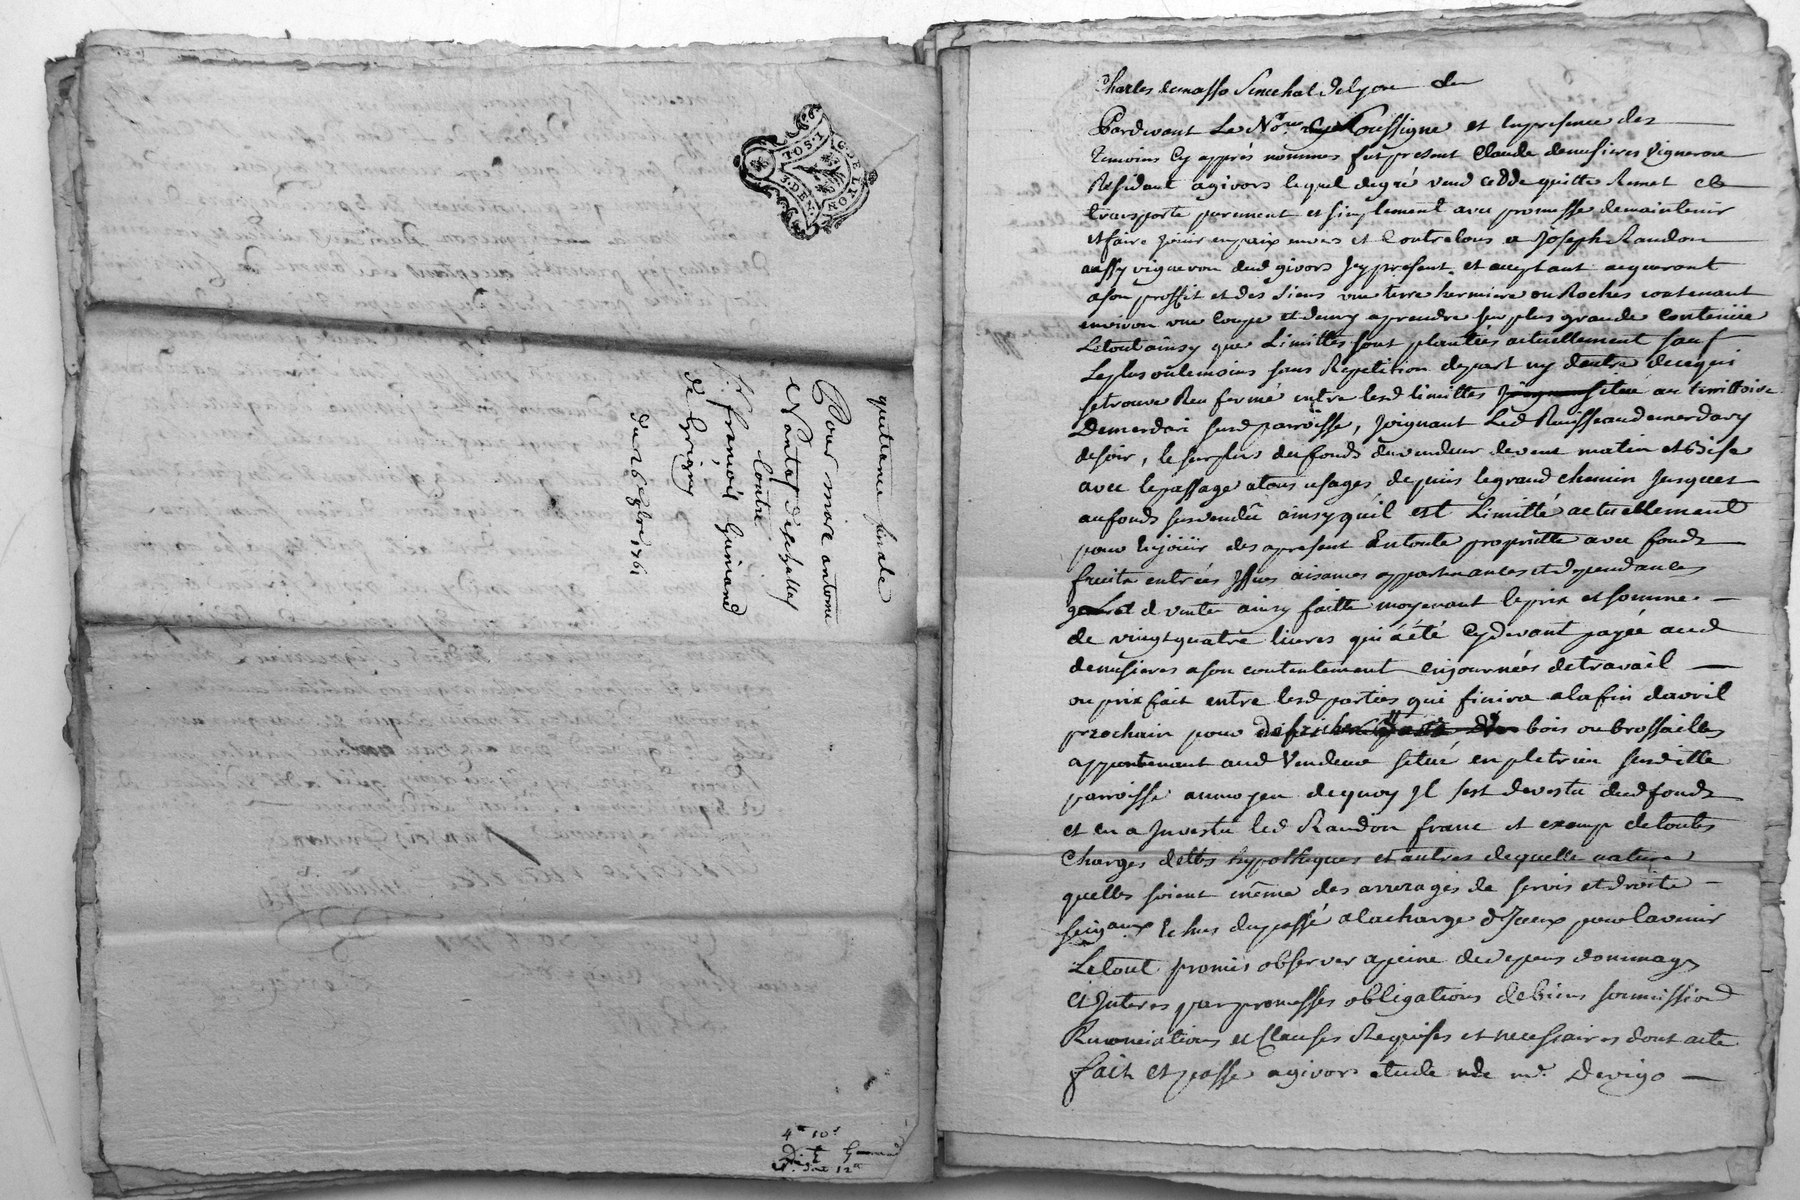 G. DE LION
1 SOL
3 DEN
quittance finale
Pour sieur antoine
Nantas dit challas
Contre
Sr. francois Guinand
de Grigny
du 26 7bre 1761
4ᵗᵗ 10ˢ
Charles demasso Senechal delyon
Pardevant Le Nore. Soussigne et Enpresence des
temoins Cy apprés nommés fut present Claude demusieres vigneron
Residant agivors lequel degré vend cedde quitte Remet et
transporte purement et simplement avec promesse demaintenir
et faire jouir enpaix envers et Contre tous a Joseph Randon
aussy vigneron dud givors Jcy present et acceptant acquerant
ason proffit et des siens une terre hermiere ou Roches contenant
environ une Coupe et demy aprendre sur plus grande Contenüe
Letout ainsy que Limittes sont plantées actuellement sauf
Leplus oulemoins sans Repetition depart ny dautre decequi
setrouve Renfermé entre lesd limittes situé au territtoire
Demerdari susd parroisse, Joignant Led Ruisseau demerdary
desoir, le surplus dufonds duvendeur devent matin et Bise
avec lepassage atous usages depuis legrand chemin jusques
aufonds susvendü ainsy quil est Limitté actuellement
pour enjoüir des apresent Entoute proprietté avec fonds
fruits entrées Jssües aisances appartenances et dependances
d vente ainsy faitte moyenant leprix et somme
de vingt quatre livres qui áété Cydevant payée aud
demusieres ason contentement enjournées detravail
ou prix fait entre lesd parties qui finira alafin davril
prochain pour defricher bois ou brossailles
appartenant aud Vendeur situé en pletrieu susditte
parroisse aumoyen dequoy Jl sest devestu dud fonds
et en a Jnvestu led Randon franc et exemp detoutes
Charges dettes hypotheques et autres dequelle nature
quelles soient même des arrerages de servis et droits
seigaux Echus dupassé alacharge dJceux pour lavenir
Letout promis observer apeine dedepens dommages
et Jnteres par promesses obligations debiens soumissions
Renonciations et Clauses Requises et necessaires dont acte
fait et passé agivors etude de me. Devigo